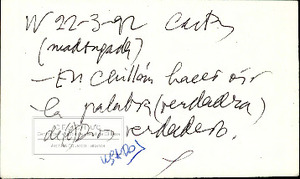 W 22-3-92 Carta
(madrugada)
— En Chillán haces oír
la palabra (verdadera)
verdadero.
USADO